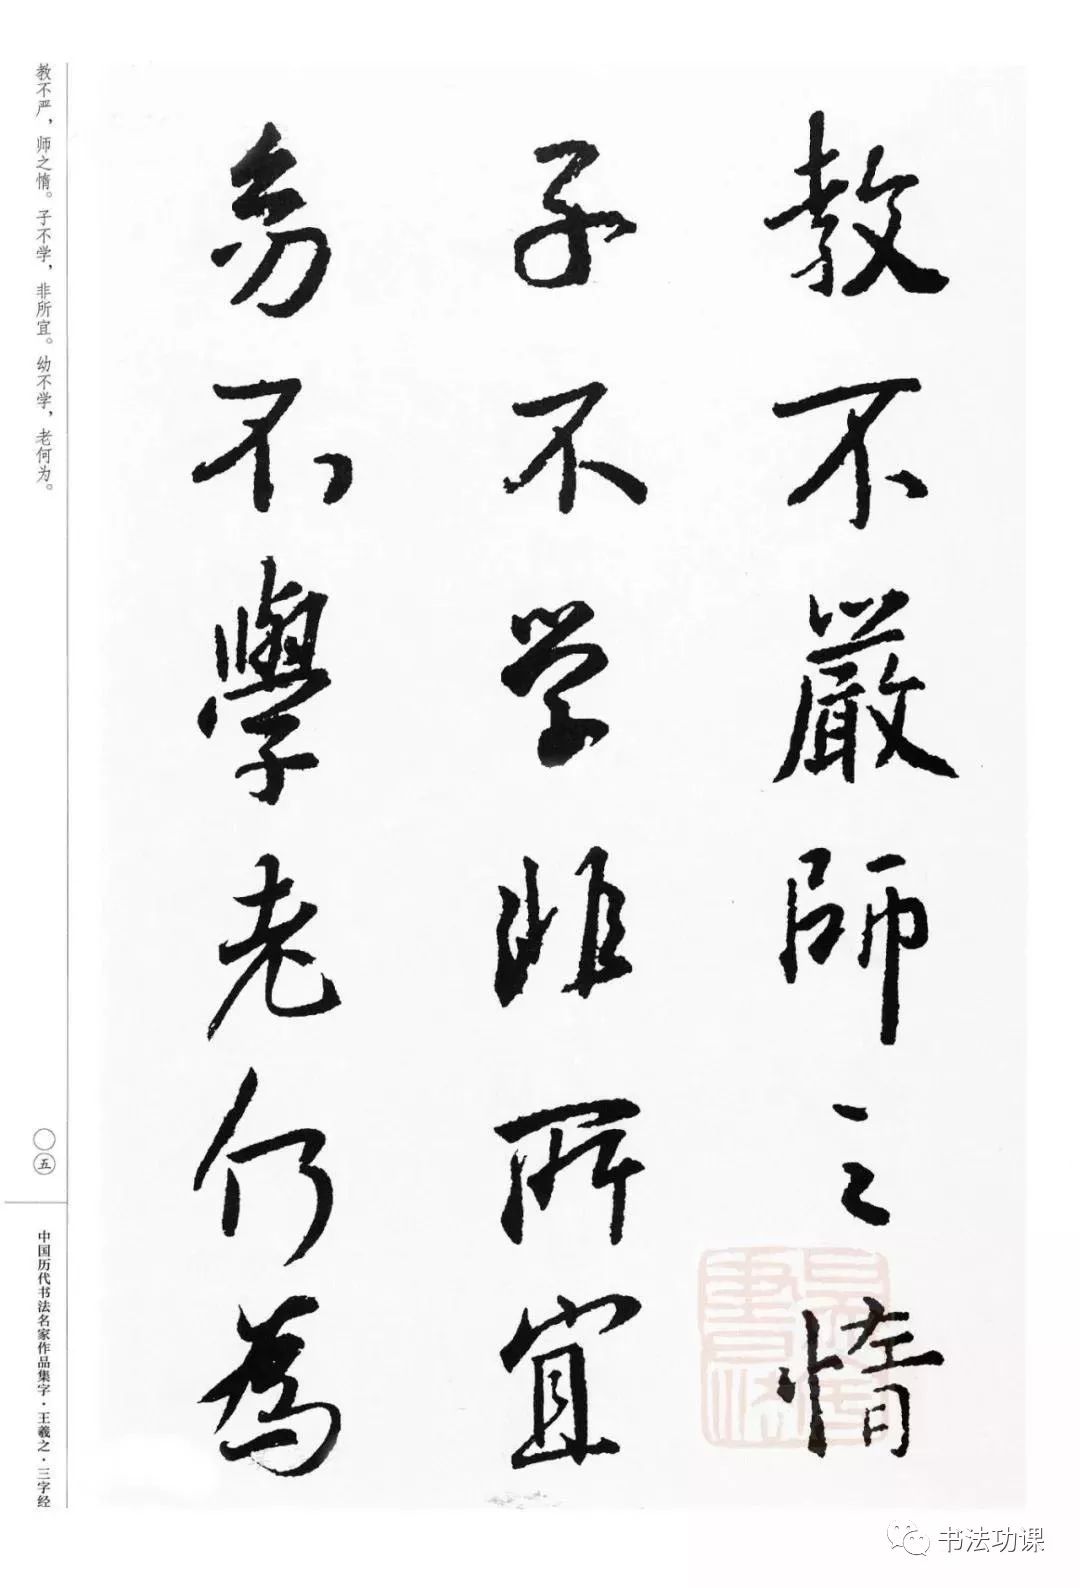 教不嚴師之惰
子不学非所宜
㓜不學老何為
教不严，师之惰。子不学，非所宜。幼不学，老何为。
〇五
中国历代书法名家作品集字·王羲之·三字经
书法功课